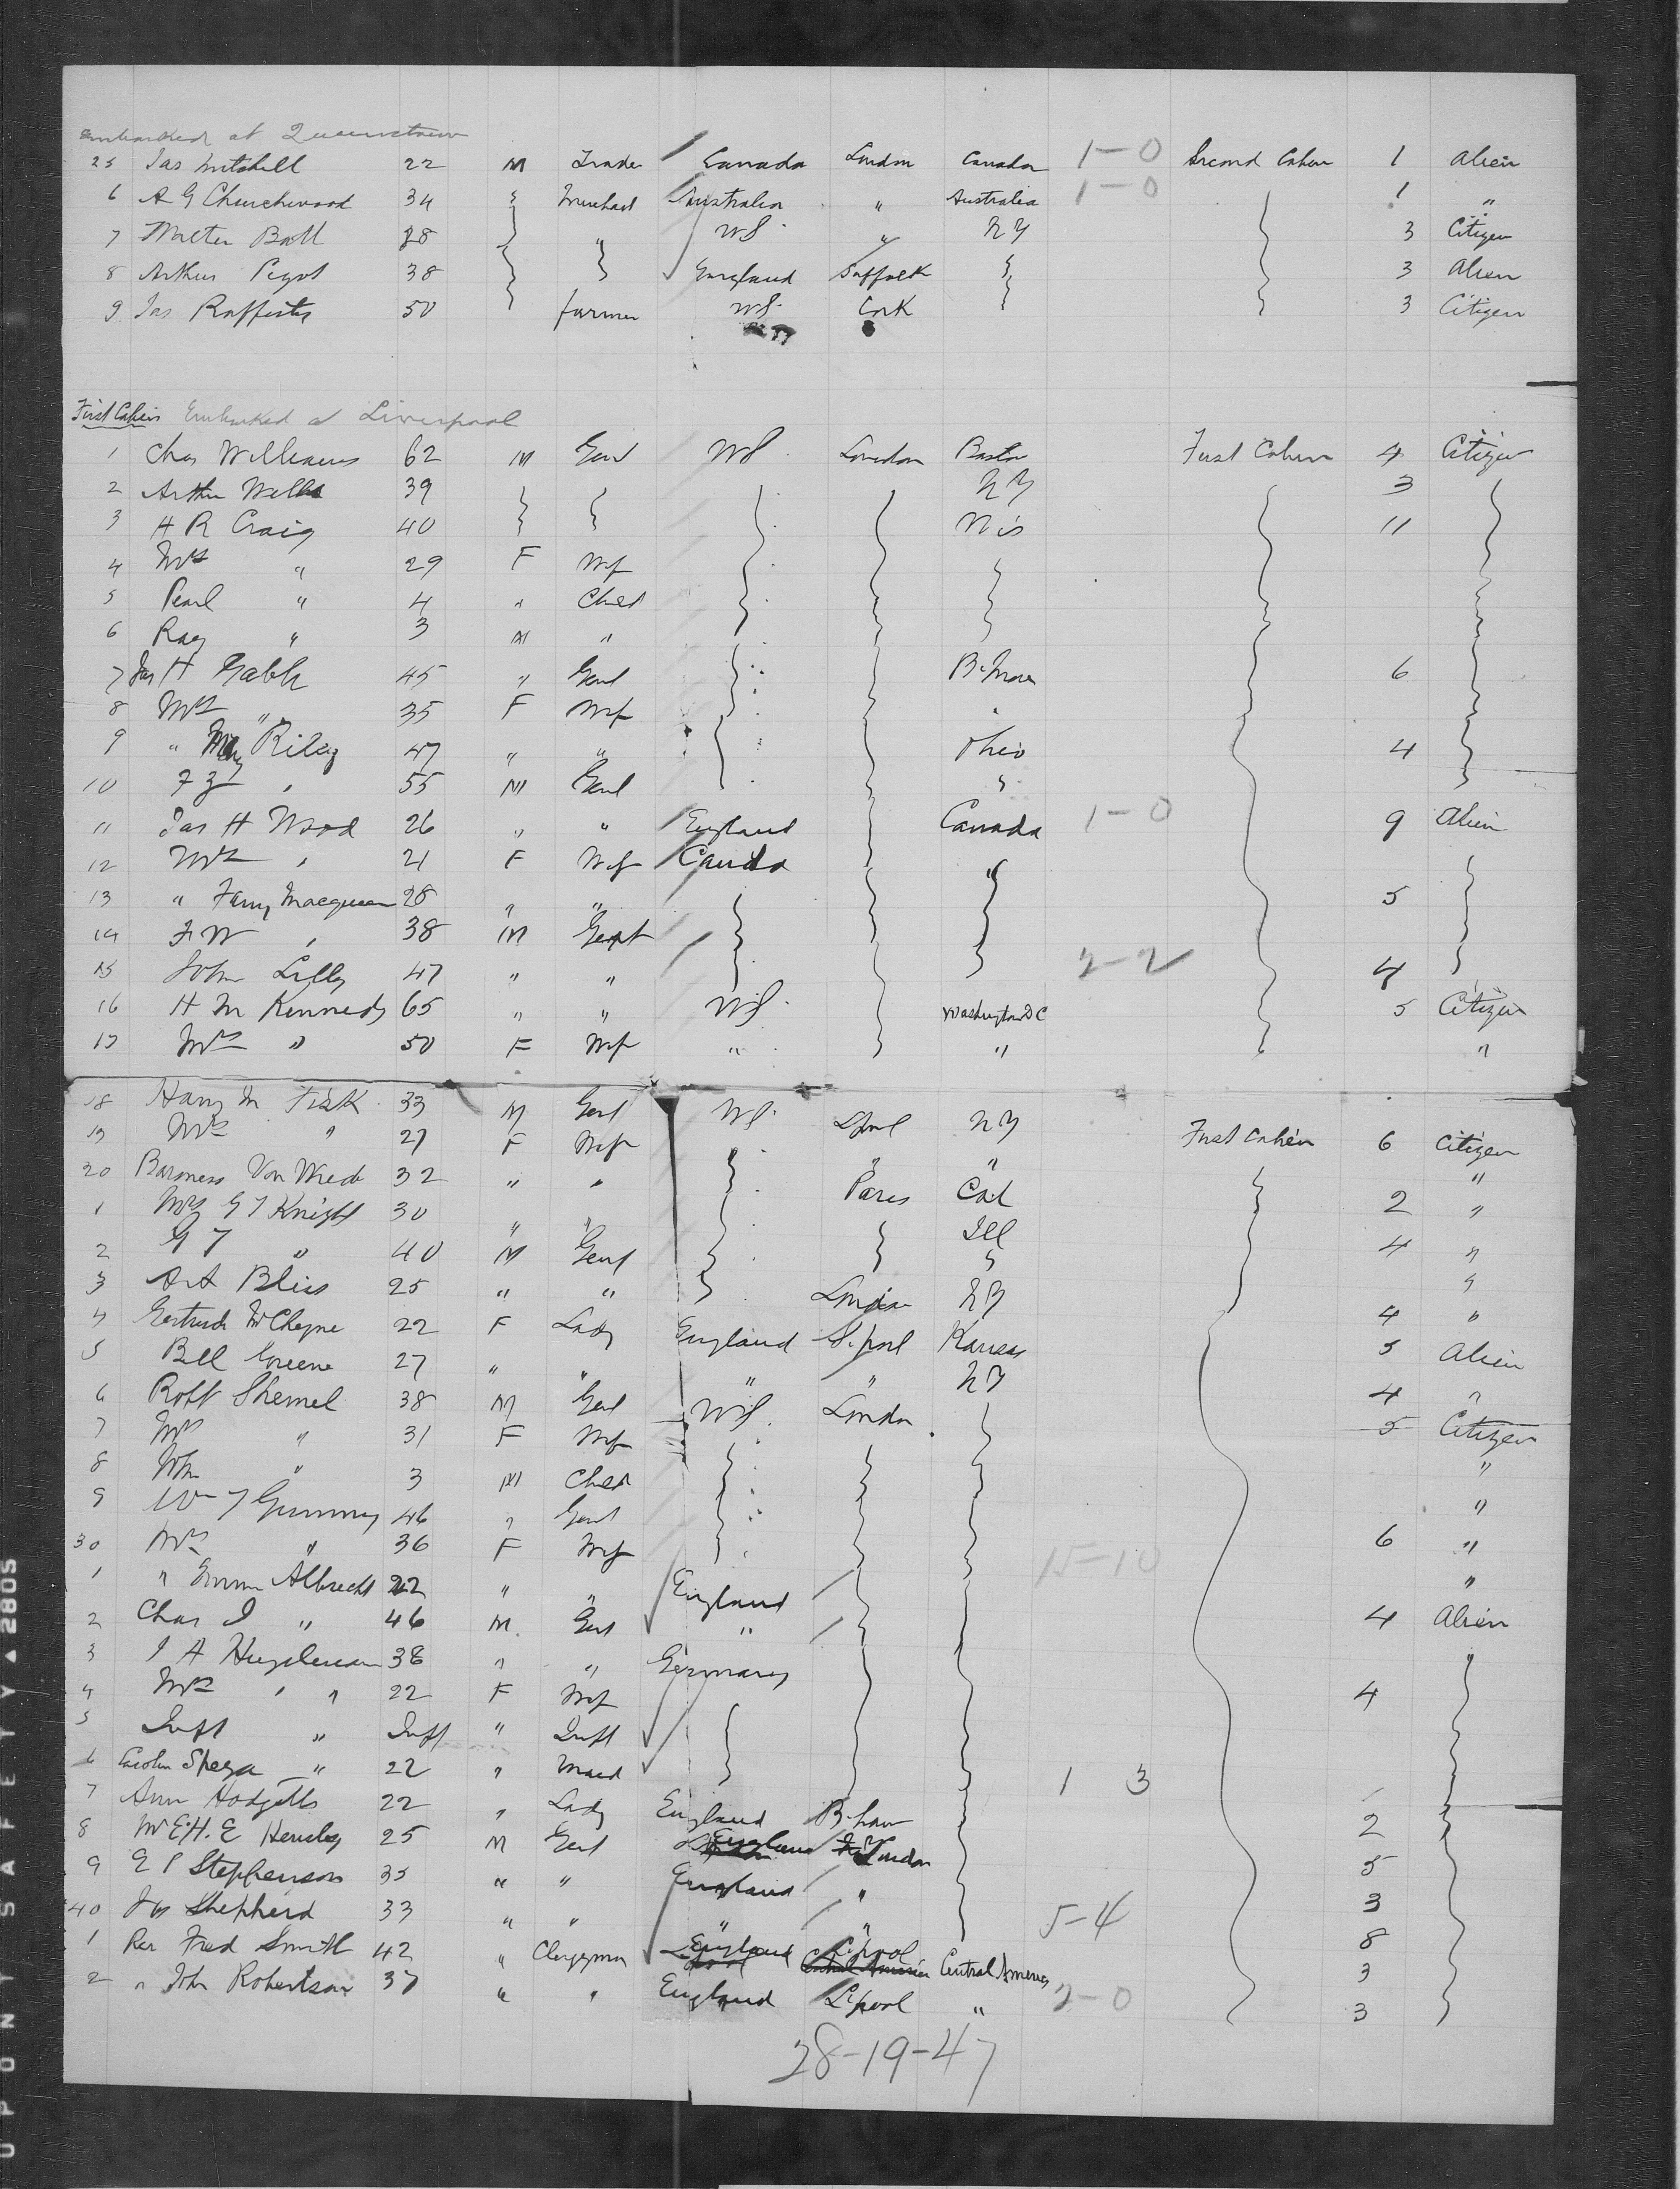 embarked at Queenstown
25 Jas Mitchell 22 M Trader Canada London Canada 1-0 Second Cabin 1 Alien
6 A G Churchwood 34 Merchant Australia " Australia 1-0 1 "
7 Walter Ball 28 " US " NY 3 Citizen
8 Arthur Pigot 38 England Suffolk 3 Alien
9 Jas 50 farmer US Cork 3 Citizen
First Cabin Embarked at Liverpool
1 Chas Williams 62 M Gent US London Boston First Cabin 4 Citizen
2 Arthur 39 NY 3
3 H R Craig 40 Wis 11
4 Mrs " 29 F Wif
5 Pearl " 4 " Child
6 Ray " 3 M "
7 Jas H Gabb 45 " Gent B.More 6
8 Mrs " 35 F Wif "
9 " Riley 47 " " Ohio 4
10 " 55 M Gent
11 Jas H Wood 26 " " England Canada 1-0 9 Alien
12 Mrs " 21 F Wif Canada "
13 " Fanny Macqueen 28 " " 5
14 F W " 38 M Gent
15 John Lilly 47 " " 2-2 4
16 H M Kennedy 65 " " US Washington DC 5 Citizen
17 Mrs " 50 F Wif " " "
18 Harry M Fisk 33 M Gent US L'pool NY
19 Mrs " 27 F Wif " " First Cabin 6 Citizen
20 Baroness Von 32 " " Paris Cal "
1 Mrs G T Knight 30 " " Ill 2 "
2 G T " 40 M Gent 4 "
3 Bliss 25 " " London NY "
4 Gertrude McCheyne 22 F Lady England L'pool Kansas 4 "
5 Bell Greene 27 " " " " NY 5 Alien
6 Robt Shemel 38 M Gent US London 4 "
7 Mrs " 31 F Wif 5 Citizen
8 Wm " 3 M Child "
9 Wm T 46 " Gent "
30 Mrs " 36 F Wif 15-10 6 "
1 " Emma Albrecht 22 " " England "
2 Chas J " 46 M Gent " 4 Alien
3 38 " " Germany "
4 Mrs " " 22 F Wif 4
5 Inft " Inft " Inft
6 " 22 " Maid 1 3
7 Ann Hodgetts 22 " Lady England B.ham
8 25 M Gent England London 2
9 E P Stephenson 35 " " England " 5
40 Shepherd 33 " " " " 5-4 3
1 Rev Fred Smith 42 " Clergyman England L'pool Central America 8
3
2 " John Robertson 37 " " England L'pool " 2-0 3
28-19-47
UPONT SAFETY ▲ 2805